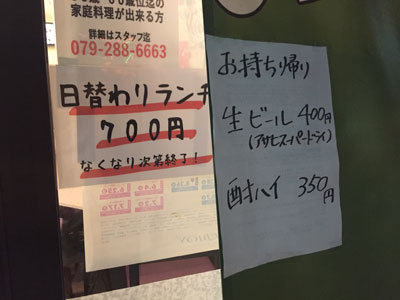 家庭料理が出来る方
詳細はスタッフ迄
079-288-6663
日替わりランチ
700円
なくなり次第終了!
お持ち帰り
生ビール 400円
(アサヒスーパードライ)
酎ハイ 350円